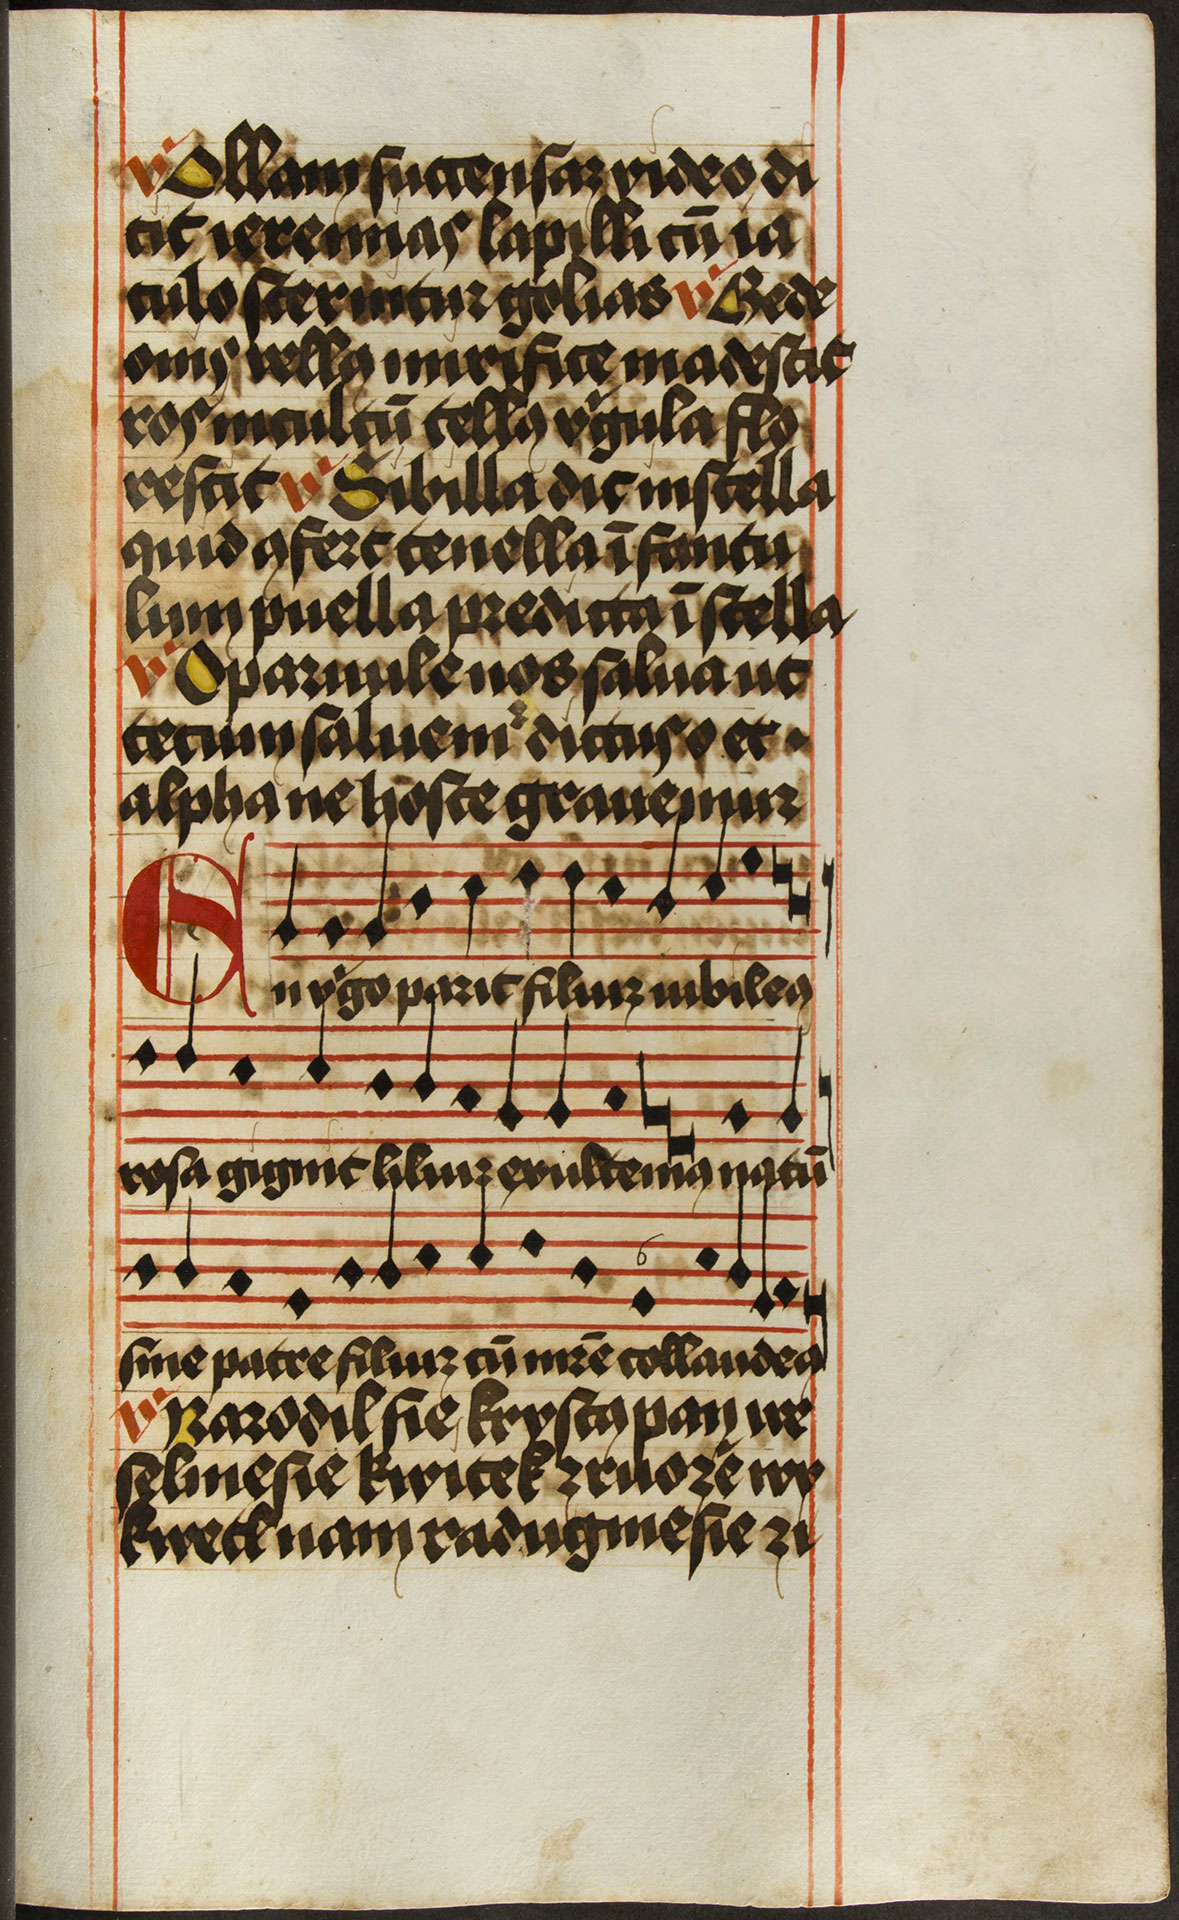 v̓ Ollam succensaꝝ video di
cit ieremias lapilli cū ia
culo sternitur golias v̓ Gede
onis vellꝰ mirifice madescit
ros incultū tellꝰ vͥgula flo
rescit v̓ Sibilla dic in stella
quid ꝯfert tenella īfantu
lum puella predicta ī stella
v̓ O paruule nos salua ut
tecum saluemur dictus o et
alpha ne hoste grauemur
En vͥgo parit filiuꝫ iubileꝰ
rosa gignit liliuꝫ exultemꝰ natū
sine patre filiuꝫ cū mr̄e collaudeꝰ
v̓ Narodil sie krystꝰ pan we
selmesie kwitek z ruoze wy
kwetl nam radugmesie zi